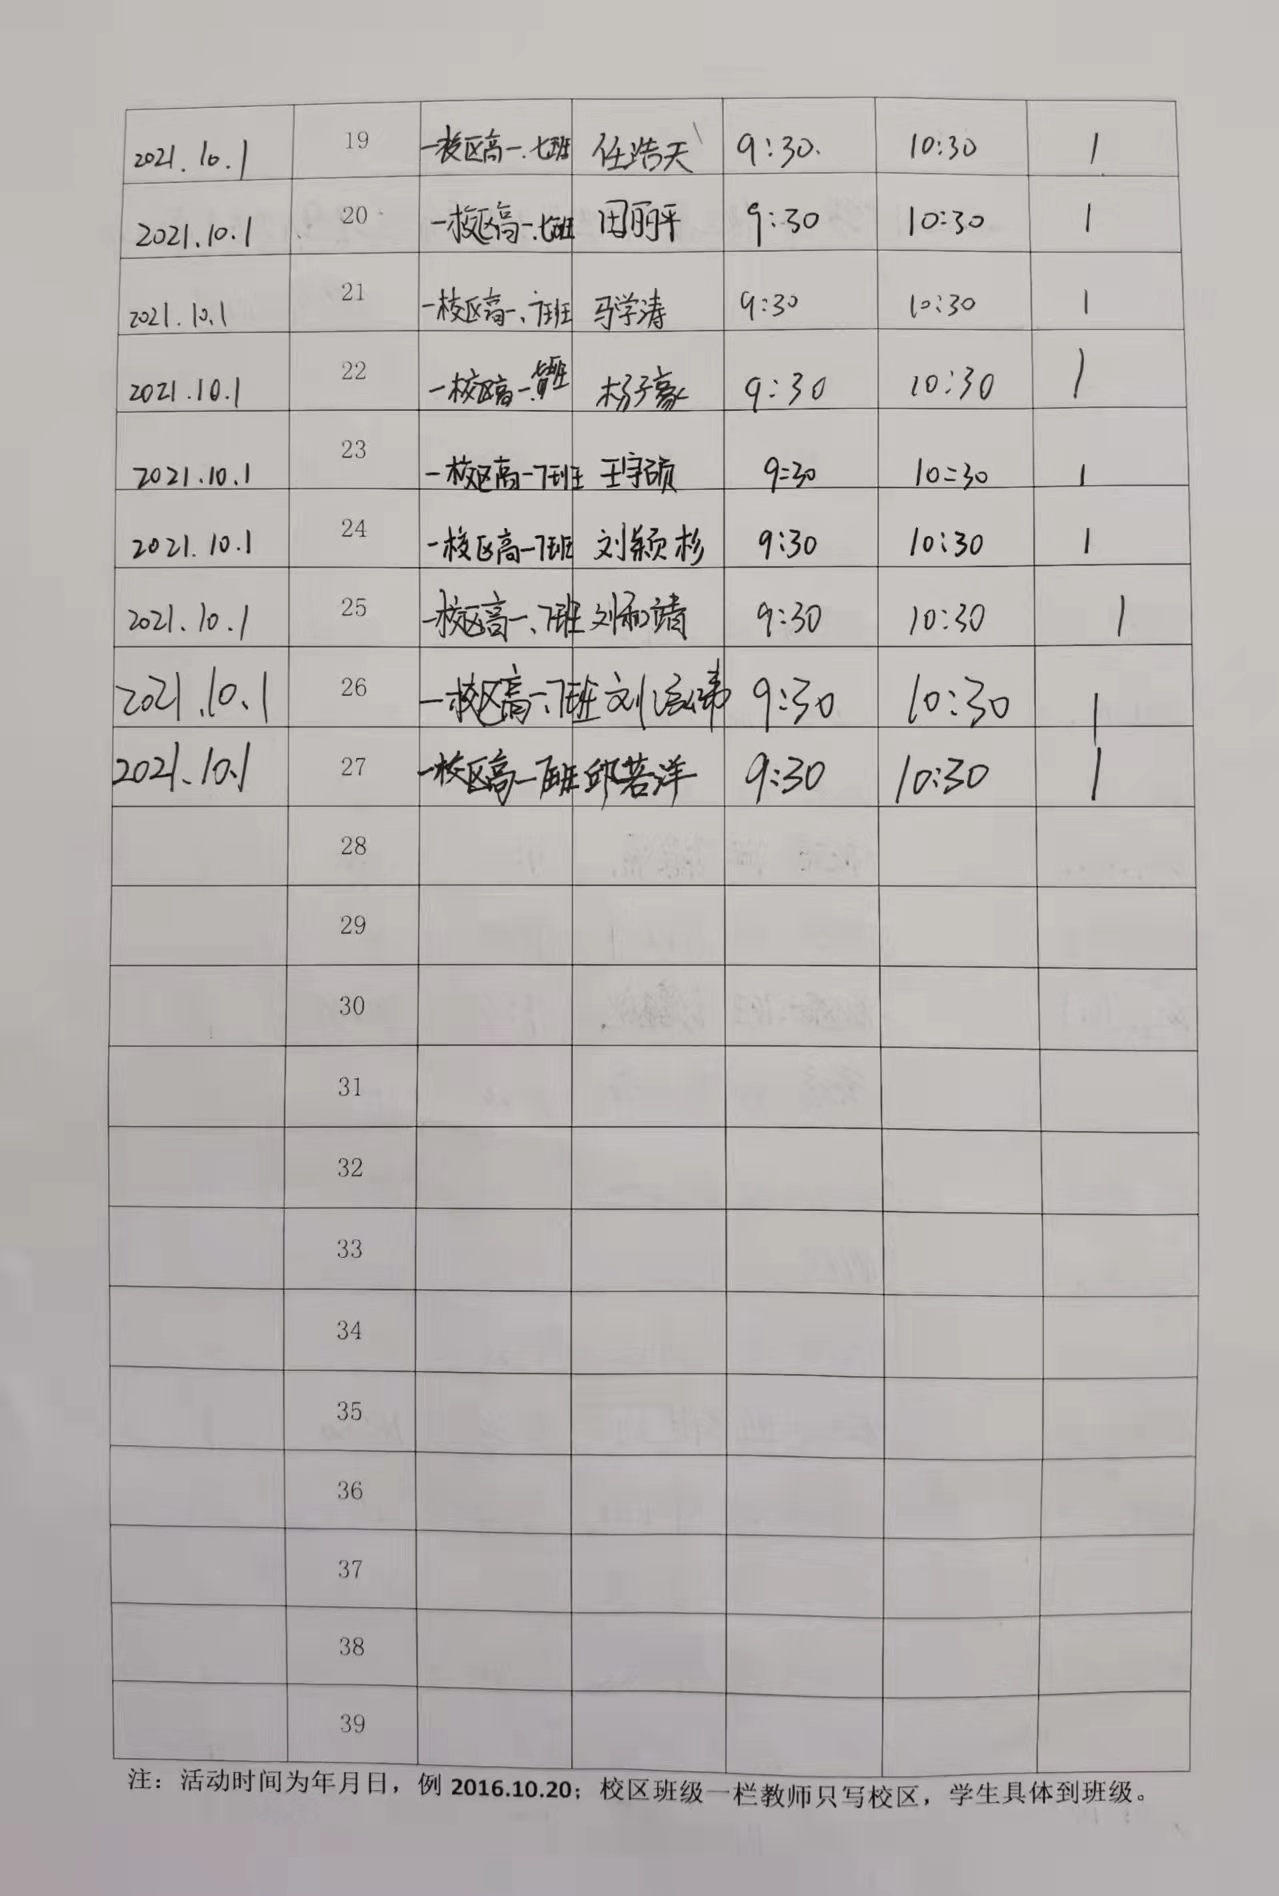 2021.10.1 19 一校区高一.七班 任浩天 9:30. 10:30 1
2021.10.1 20 一校区高一.七班 田丽平 9:30 10:30 1
2021.10.1 21 一校区高一、7班 马学涛 9:30 10:30 1
2021.10.1 22 一校区高一. 杨子豪 9:30 10:30 1
2021.10.1 23 一校区高一7班 王宇硕 9:30 10:30 1
2021.10.1 24 一校区高一7班 刘颖杉 9:30 10:30 1
2021.10.1 25 一校区高一、7班 刘和靖 9:30 10:30 1
2021.10.1 26 一校区高一、7班 刘 9:30 10:30 1
2021.10.1 27 一校区高一7班 邱若洋 9:30 10:30 1
28
29
30
31
32
33
34
35
36
37
38
39
注：活动时间为年月日，例 2016.10.20；校区班级一栏教师只写校区，学生具体到班级。